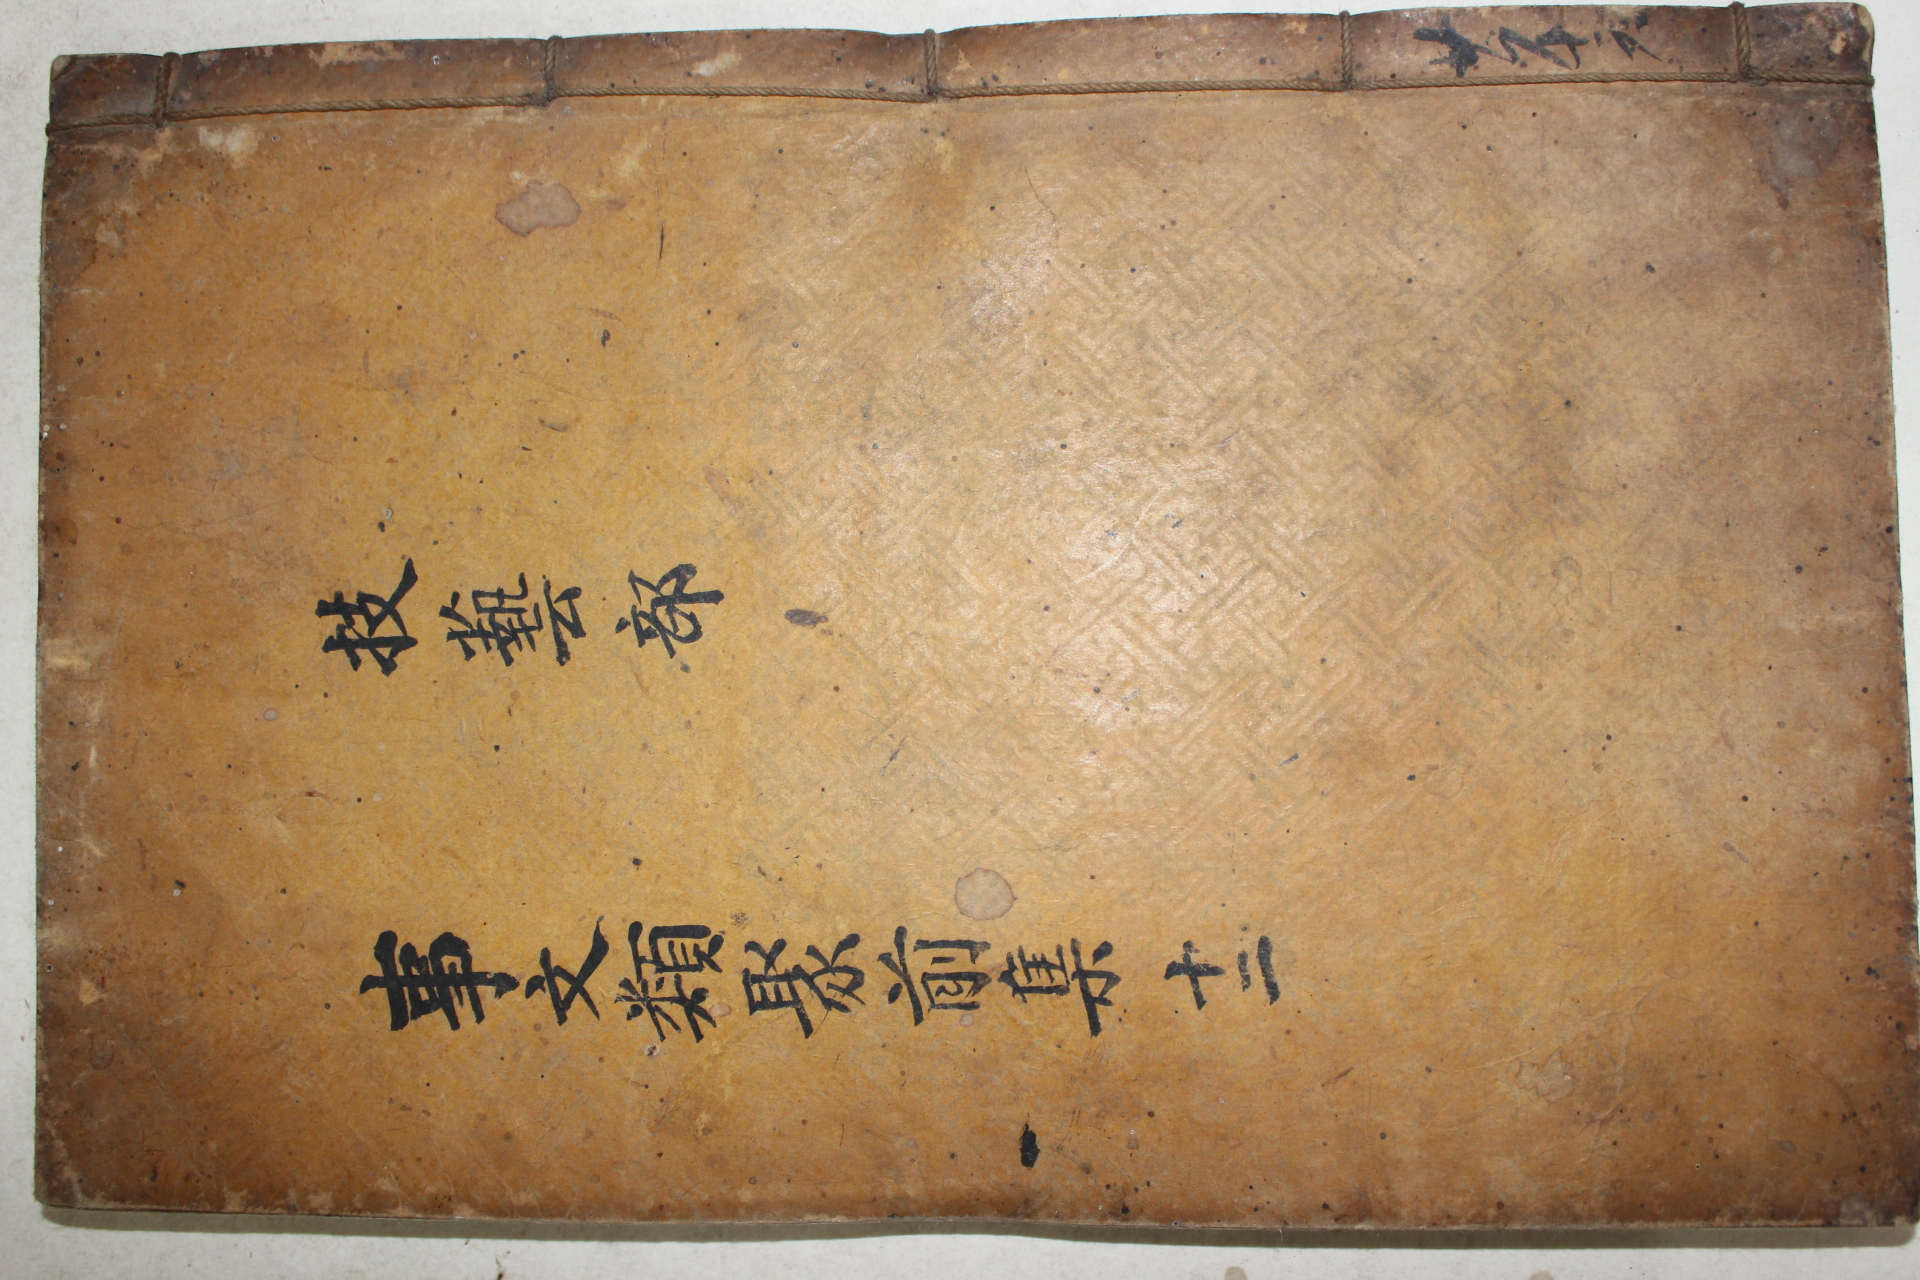 技藝部
事文類聚前集 十二